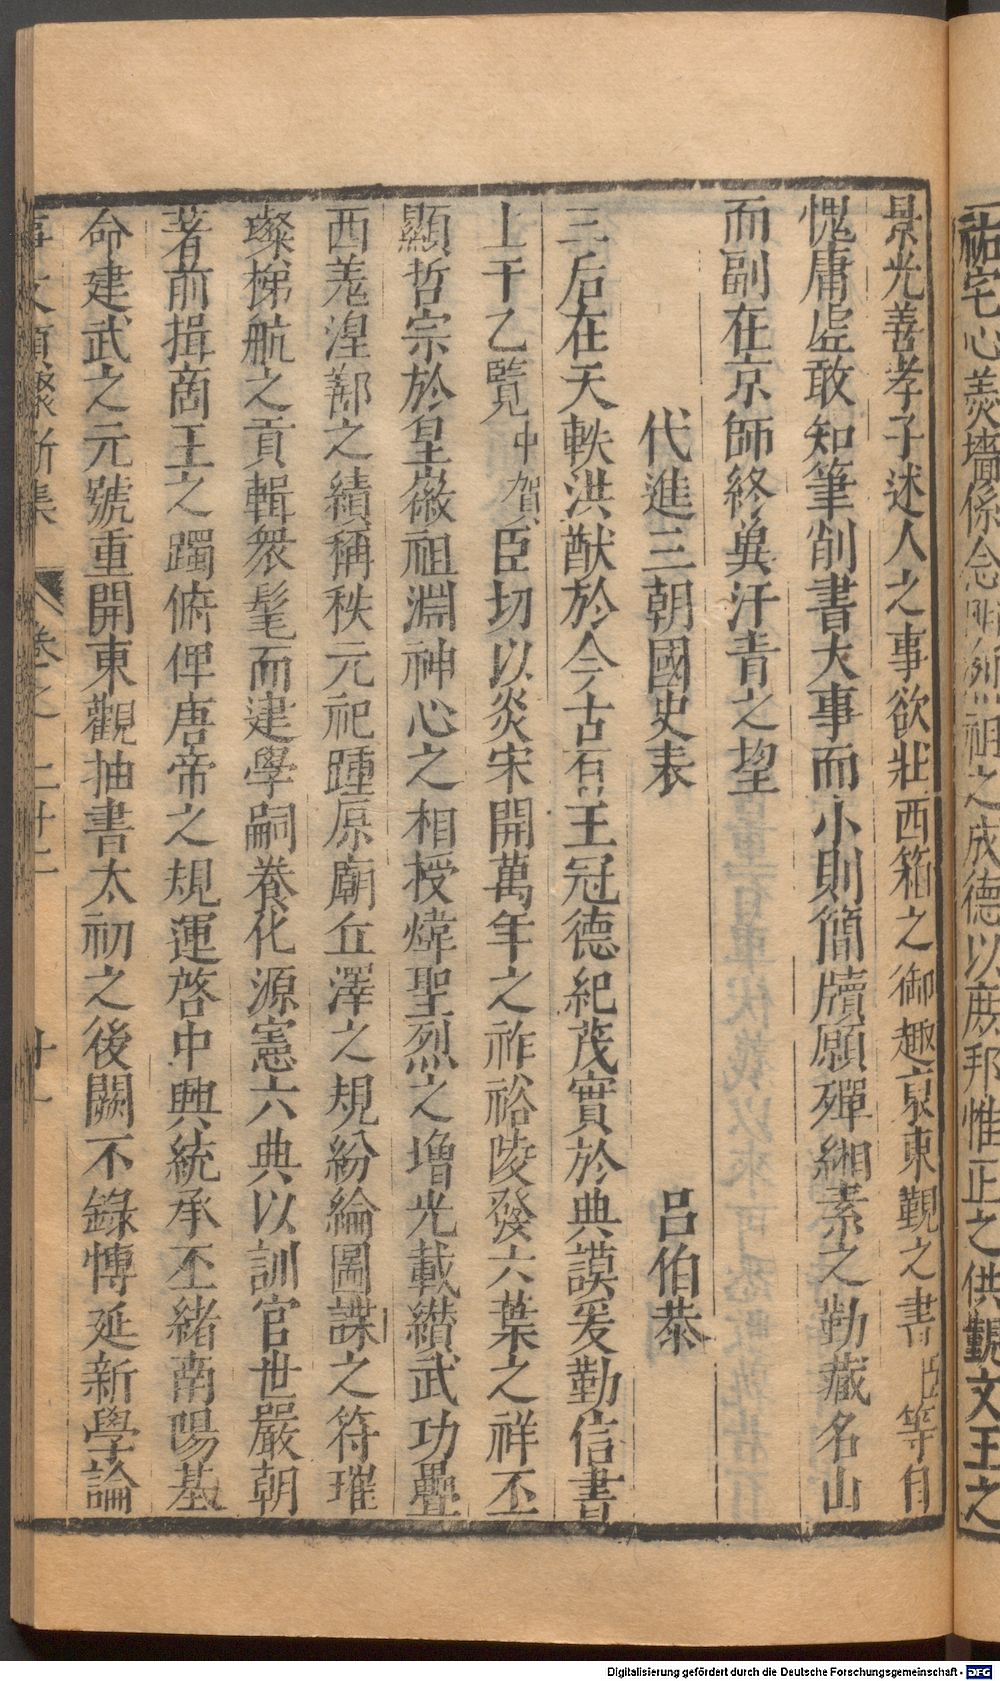 祐宅心羹墻係念昭烈祖之成德以庶邦惟正之供覲文王之
景光善孝子述人之事欲壯西箱之御趣裒東觀之書臣等自
愧庸虛敢知筆削書大事而小則簡牘願殫緗素之勤藏名山
而副在京師終冀汗青之望
代進三朝國史表
呂伯恭
三后在天軼洪猷於今古百王冠德紀茂實於典謨爰勤信書
上干乙覽中賀臣切以炎宋開萬年之祚裕陵發六葉之祥丕
顯哲宗於皇徽祖淵神心之相授煒聖烈之增光載纘武功疊
西羗湟鄯之績稱秩元祀踵原廟丘澤之規紛綸圖諜之符璀
璨梯航之貢輯衆髦而建學嗣養化源憲六典以訓官世嚴朝
著前揖商王之躅俯俾唐帝之規運啓中興統承丕緒南陽基
命建武之元號重開東觀抽書太初之後闕不錄愽延新學論
事文類聚新集 卷之二十二 廿一
Digitalisierung gefördert durch die Deutsche Forschungsgemeinschaft - DFG